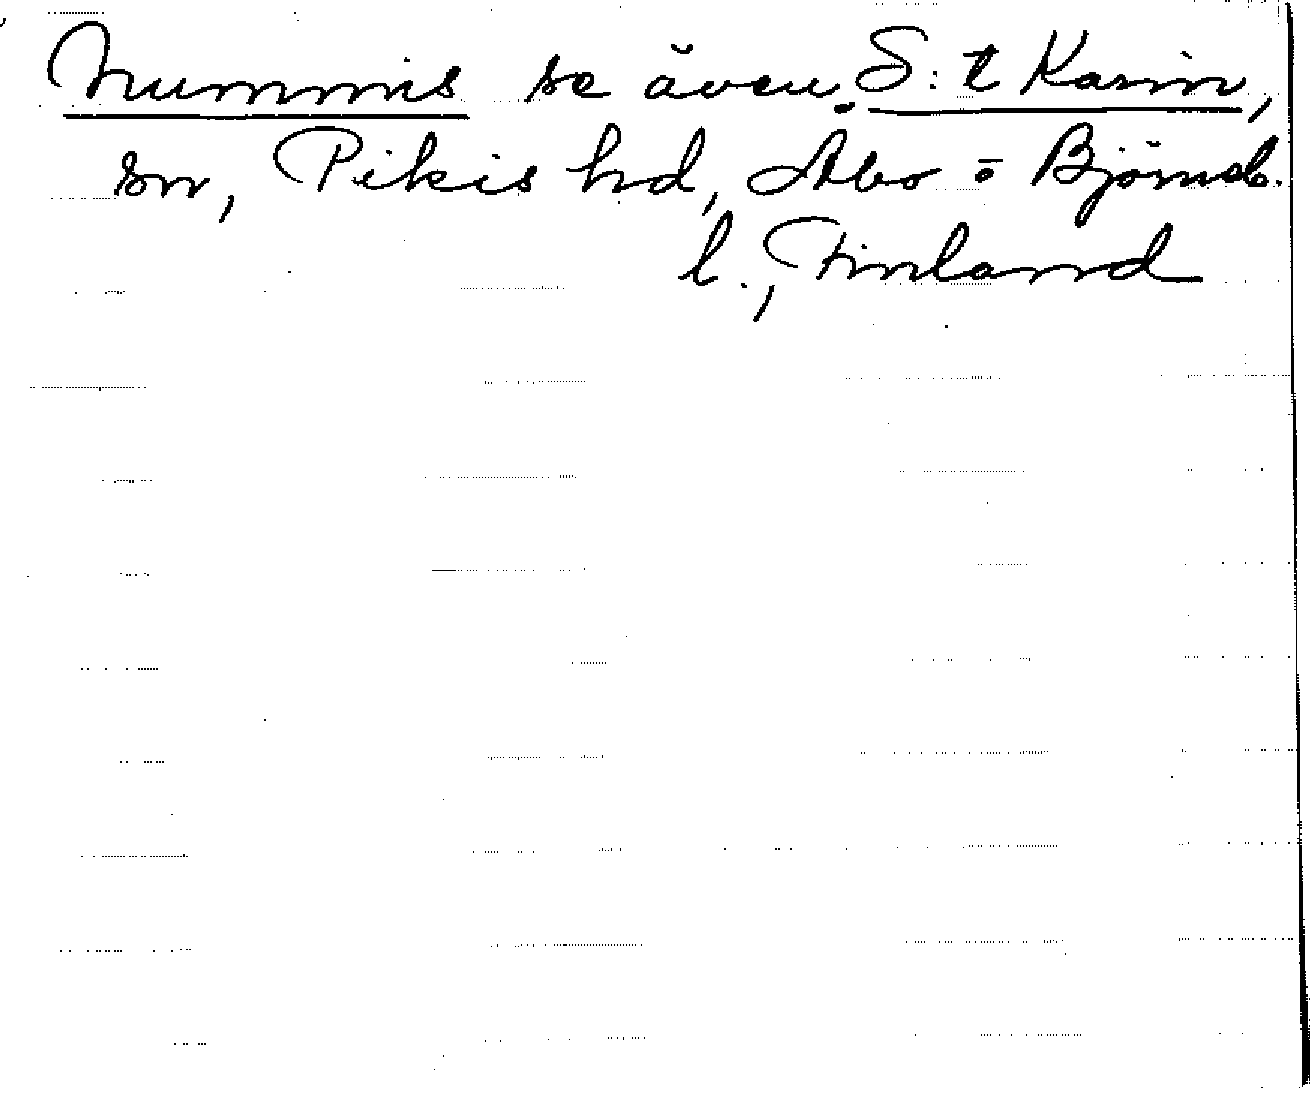 Nummis se även S:t Karin,
sn, Pikis hd, Åbo = Björneb.
l., Finland